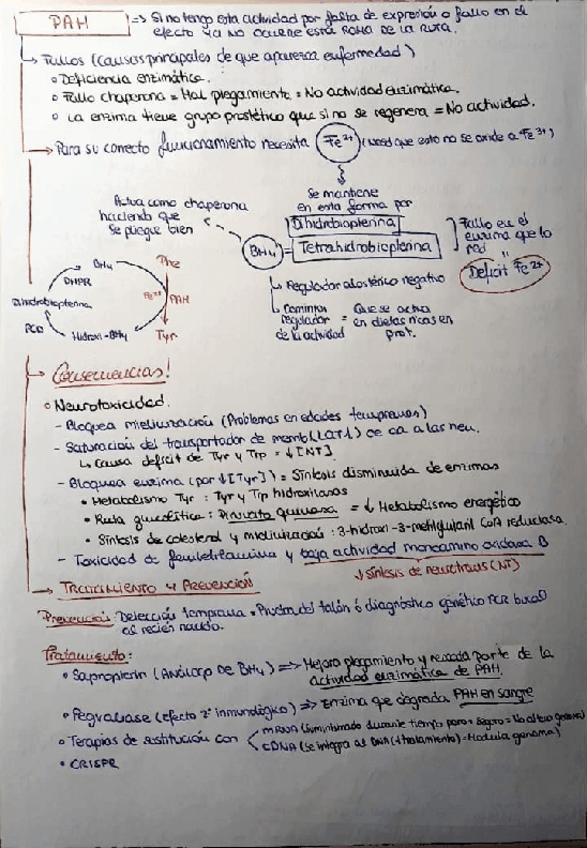 PAH => Si no tengo esta actividad por falta de expresión o fallo en el
efecto ya no ocurre esta rama de la ruta.
Fallos (causas principales de que aparezca enfermedad)
Deficiencia enzimática.
Fallo chaperona = Mal plegamiento = No actividad enzimática.
La enzima tiene grupo prostético que si no se regenera = No actividad.
Para su correcto funcionamiento necesita Fe²⁺ (need que esto no se oxide a Fe³⁺)
Se mantiene
en esta forma por
Actua como chaperona
haciendo que
se pliegue bien
Dihidrobiopterina
BH₄ = Tetrahidrobiopterina
Fallo en el
enzima que lo
red
"
Deficit Fe²⁺
Regulador alostérico negativo
regulador
de la actividad
= Que se activa
en dietas ricas en
prot.
BH₄
DHPR
Dihidrobiopterina
PCD
Hidroxi-BH₄
Phe
Fe²⁺
PAH
Tyr
Consecuencias!
Neurotoxicidad.
- Bloquea mielinización (Problemas en edades tempranas)
- Saturación del transportador de memb (LAT1) de aa a las neu.
↳ Causa deficit de Tyr y Trp = ↓[NT].
- Bloquea enzima (por ↓[Tyr]) = Síntesis disminuida de enzimas
• Metabolismo Tyr : Tyr y Trp hidroxilasas
• Ruta glucolítica : Piruvato quinasa = ↓ Metabolismo energético
• Síntesis de colesterol y mielinización : 3-hidroxi-3-metilglutaril CoA reductasa.
- Toxicidad de feniletilamina y baja actividad monoamino oxidasa B
↓ síntesis de neurotrans (NT)
Tratamiento y Prevención
Prevención: Detección temprana • Prueba del talón ó diagnóstico genético PCR bucal
al recién nacido.
Tratamiento:
Sapropterin (Análogo de BH₄) => Mejora plegamiento y rescata parte de la
actividad enzimática de PAH.
Pegvaliase (efecto 2º inmunológico) => Enzima que degrada PAH en sangre
Terapias de sustitución con
mRNA (Suministrado durante tiempo para = Seguro = No altero genoma)
cDNA (Se integra al DNA (1 tratamiento) = Modula genoma)
CRISPR